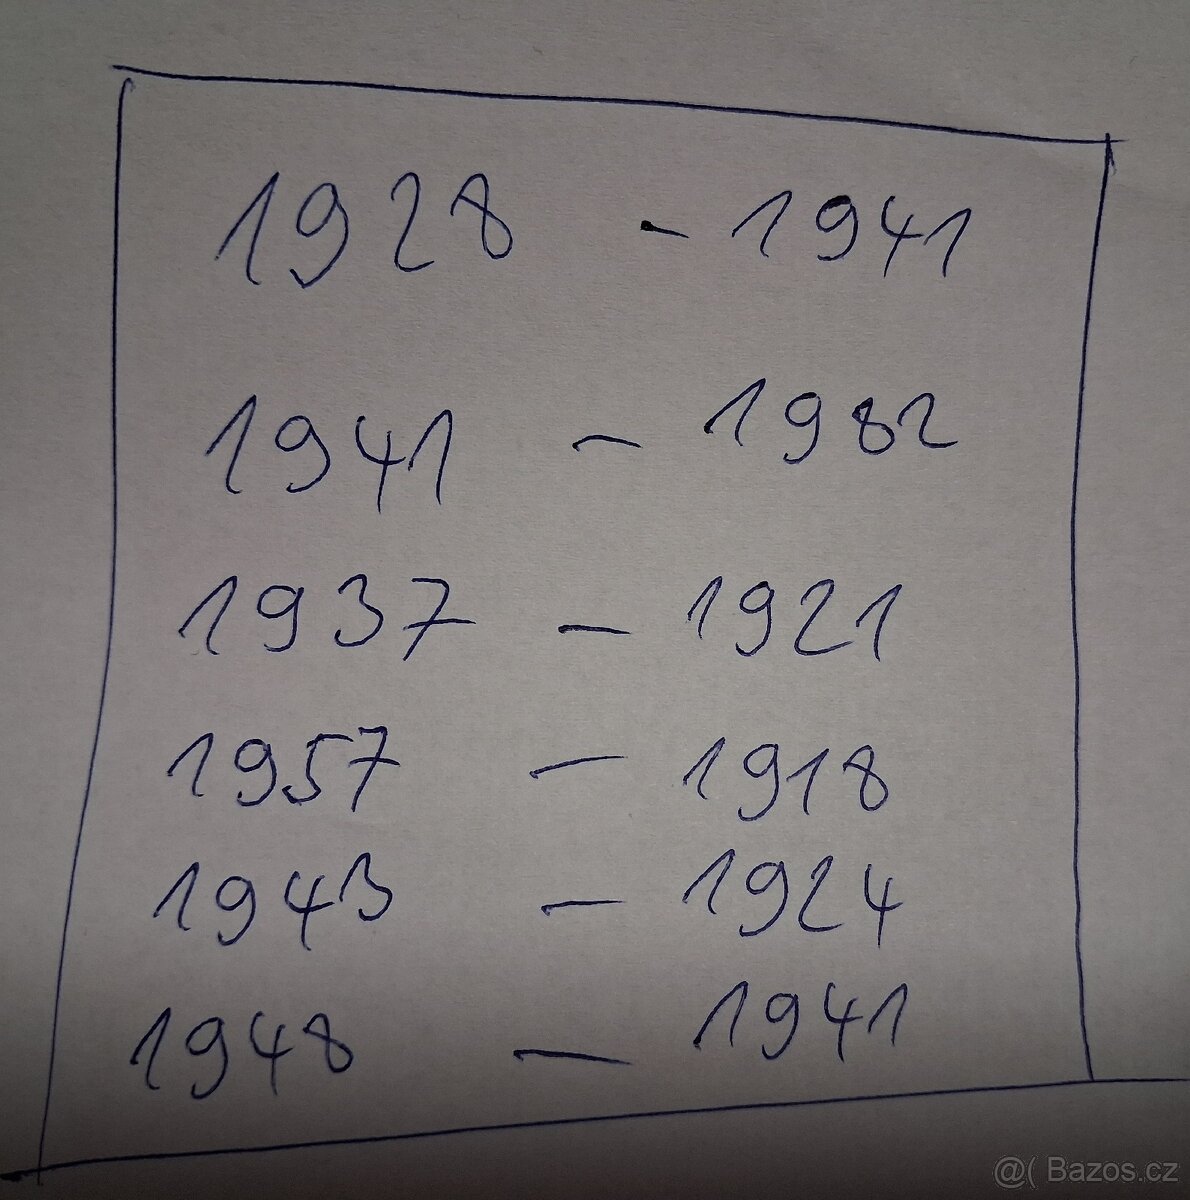 1928 - 1941
1941 - 1982
1937 - 1921
1957 - 1918
1943 - 1924
1948 - 1941
@( Bazos.cz